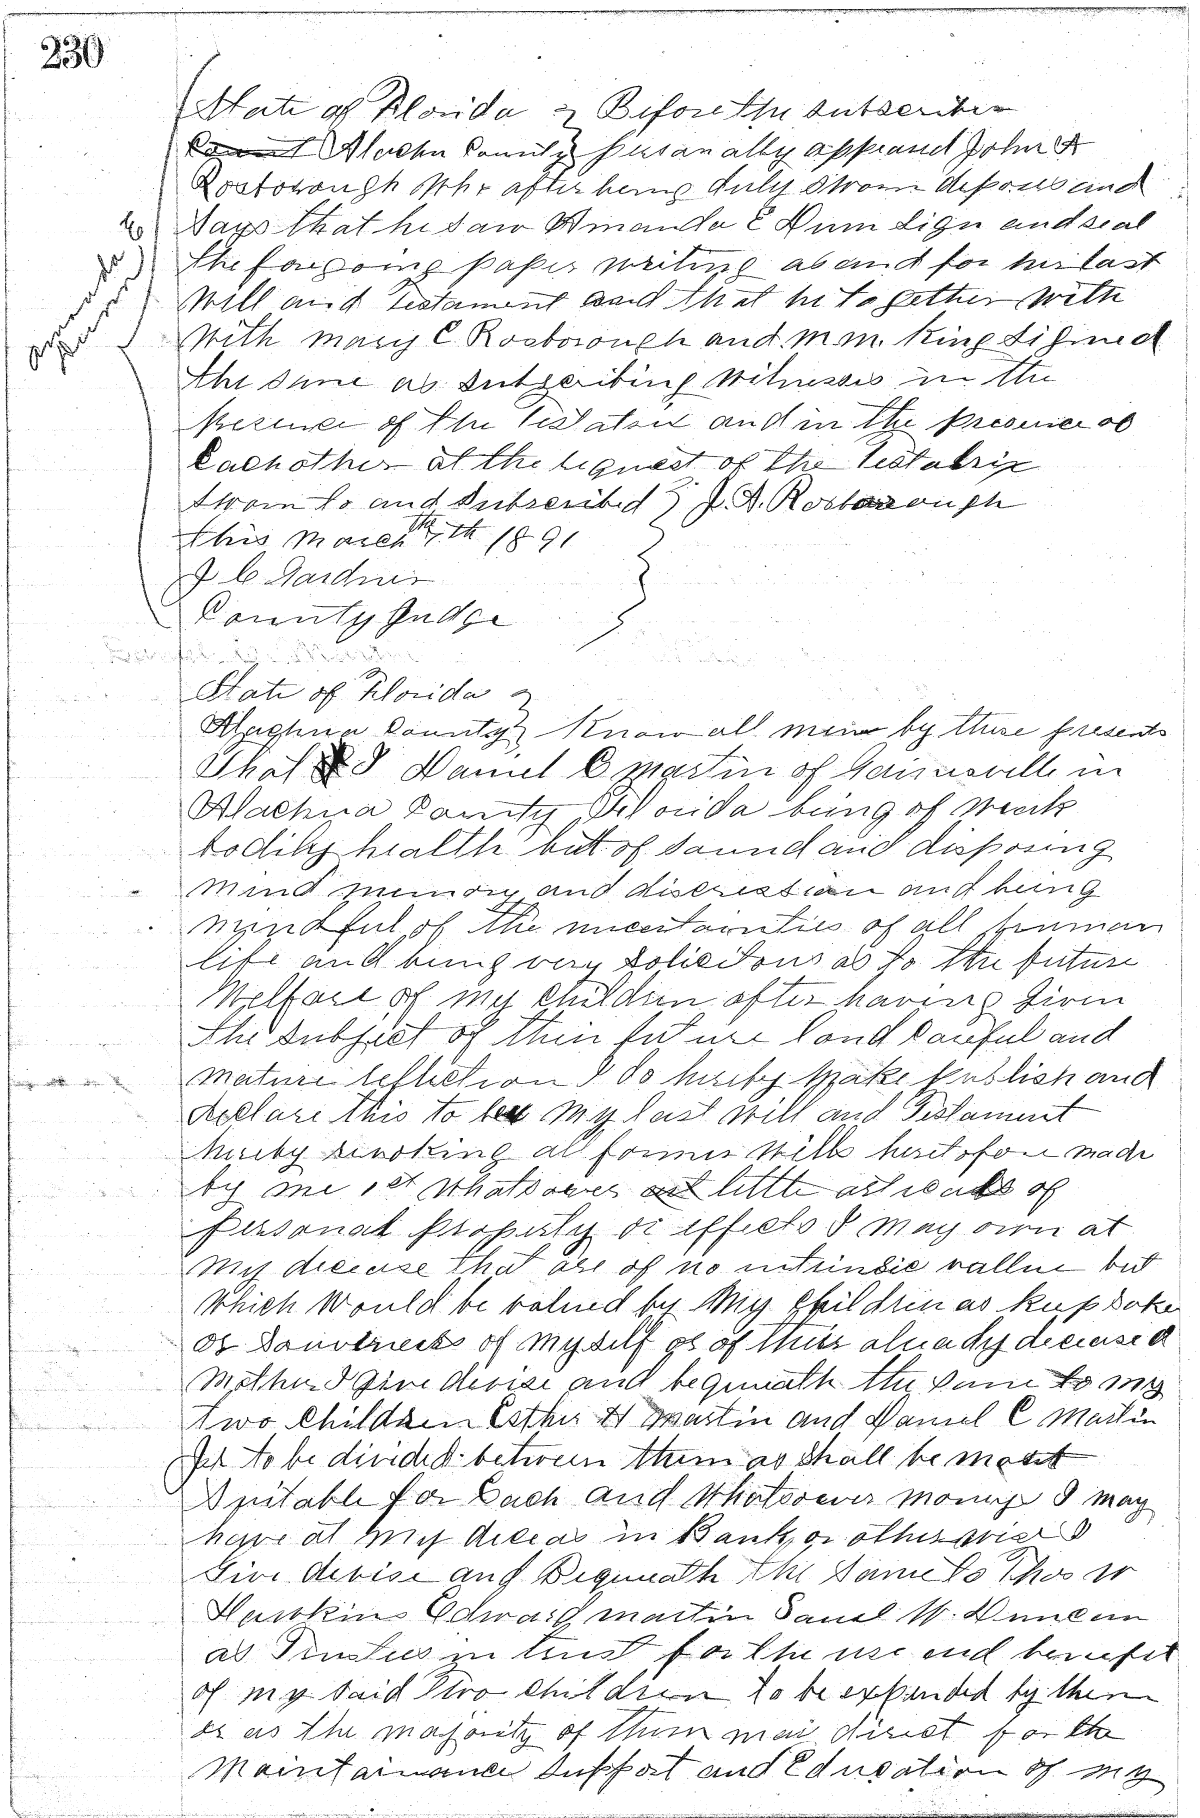 230
State of Florida } Before the subscriber
Alachua County } personally appeared John A
Rosborough who after being duly sworn deposes and
Says that he saw Amanda E Dunn sign and seal
the foregoing paper writing as and for her last
Will and Testament and that he together with
With Mary C Rosborough and M. M. King Signed
the same as subscribing witnesses in the
presence of the Testatrix and in the presence of
Each other at the request of the Testatrix
Sworn to and Subscribed } J. A. Rosborough
this March 7th 1891
J C Gardner
County Judge
Amanda E
State of Florida }
Alachua County } Know all men by these presents
That I Daniel C Martin of Gainesville in
Alachua County Florida being of weak
bodily health but of sound and disposing
mind memory and discression and being
mindful of the uncertainties of all human
life and being very solicitous as to the future
Welfare of my children after having given
the subject of their future long careful and
mature reflection I do hereby make publish and
declare this to be my last will and Testament
hereby revoking al former wills heretofore made
by me 1st Whatsoever little articals of
personal property or effects I may own at
my decease that are of no intrinsic vallue but
which would be valued by my children as keep sakes
or Souvenirs of myself or of their already deceased
mother I give devise and bequeath the same to my
two children Esther H Martin and Daniel C Martin
Jr to be divided between them as shall be most
Suitable for Each and Whatsoever moneys I may
have at my deceas in Bank or otherwise I
Give devise and Bequeath the Same to Thos W
Hawkins Edward Martin Saml W. Duncan
as Trustees in trust for the use and benefit
of my said Two children to be expended by them
or as the majority of them mai direct for the
Maintainance Support and Education of my